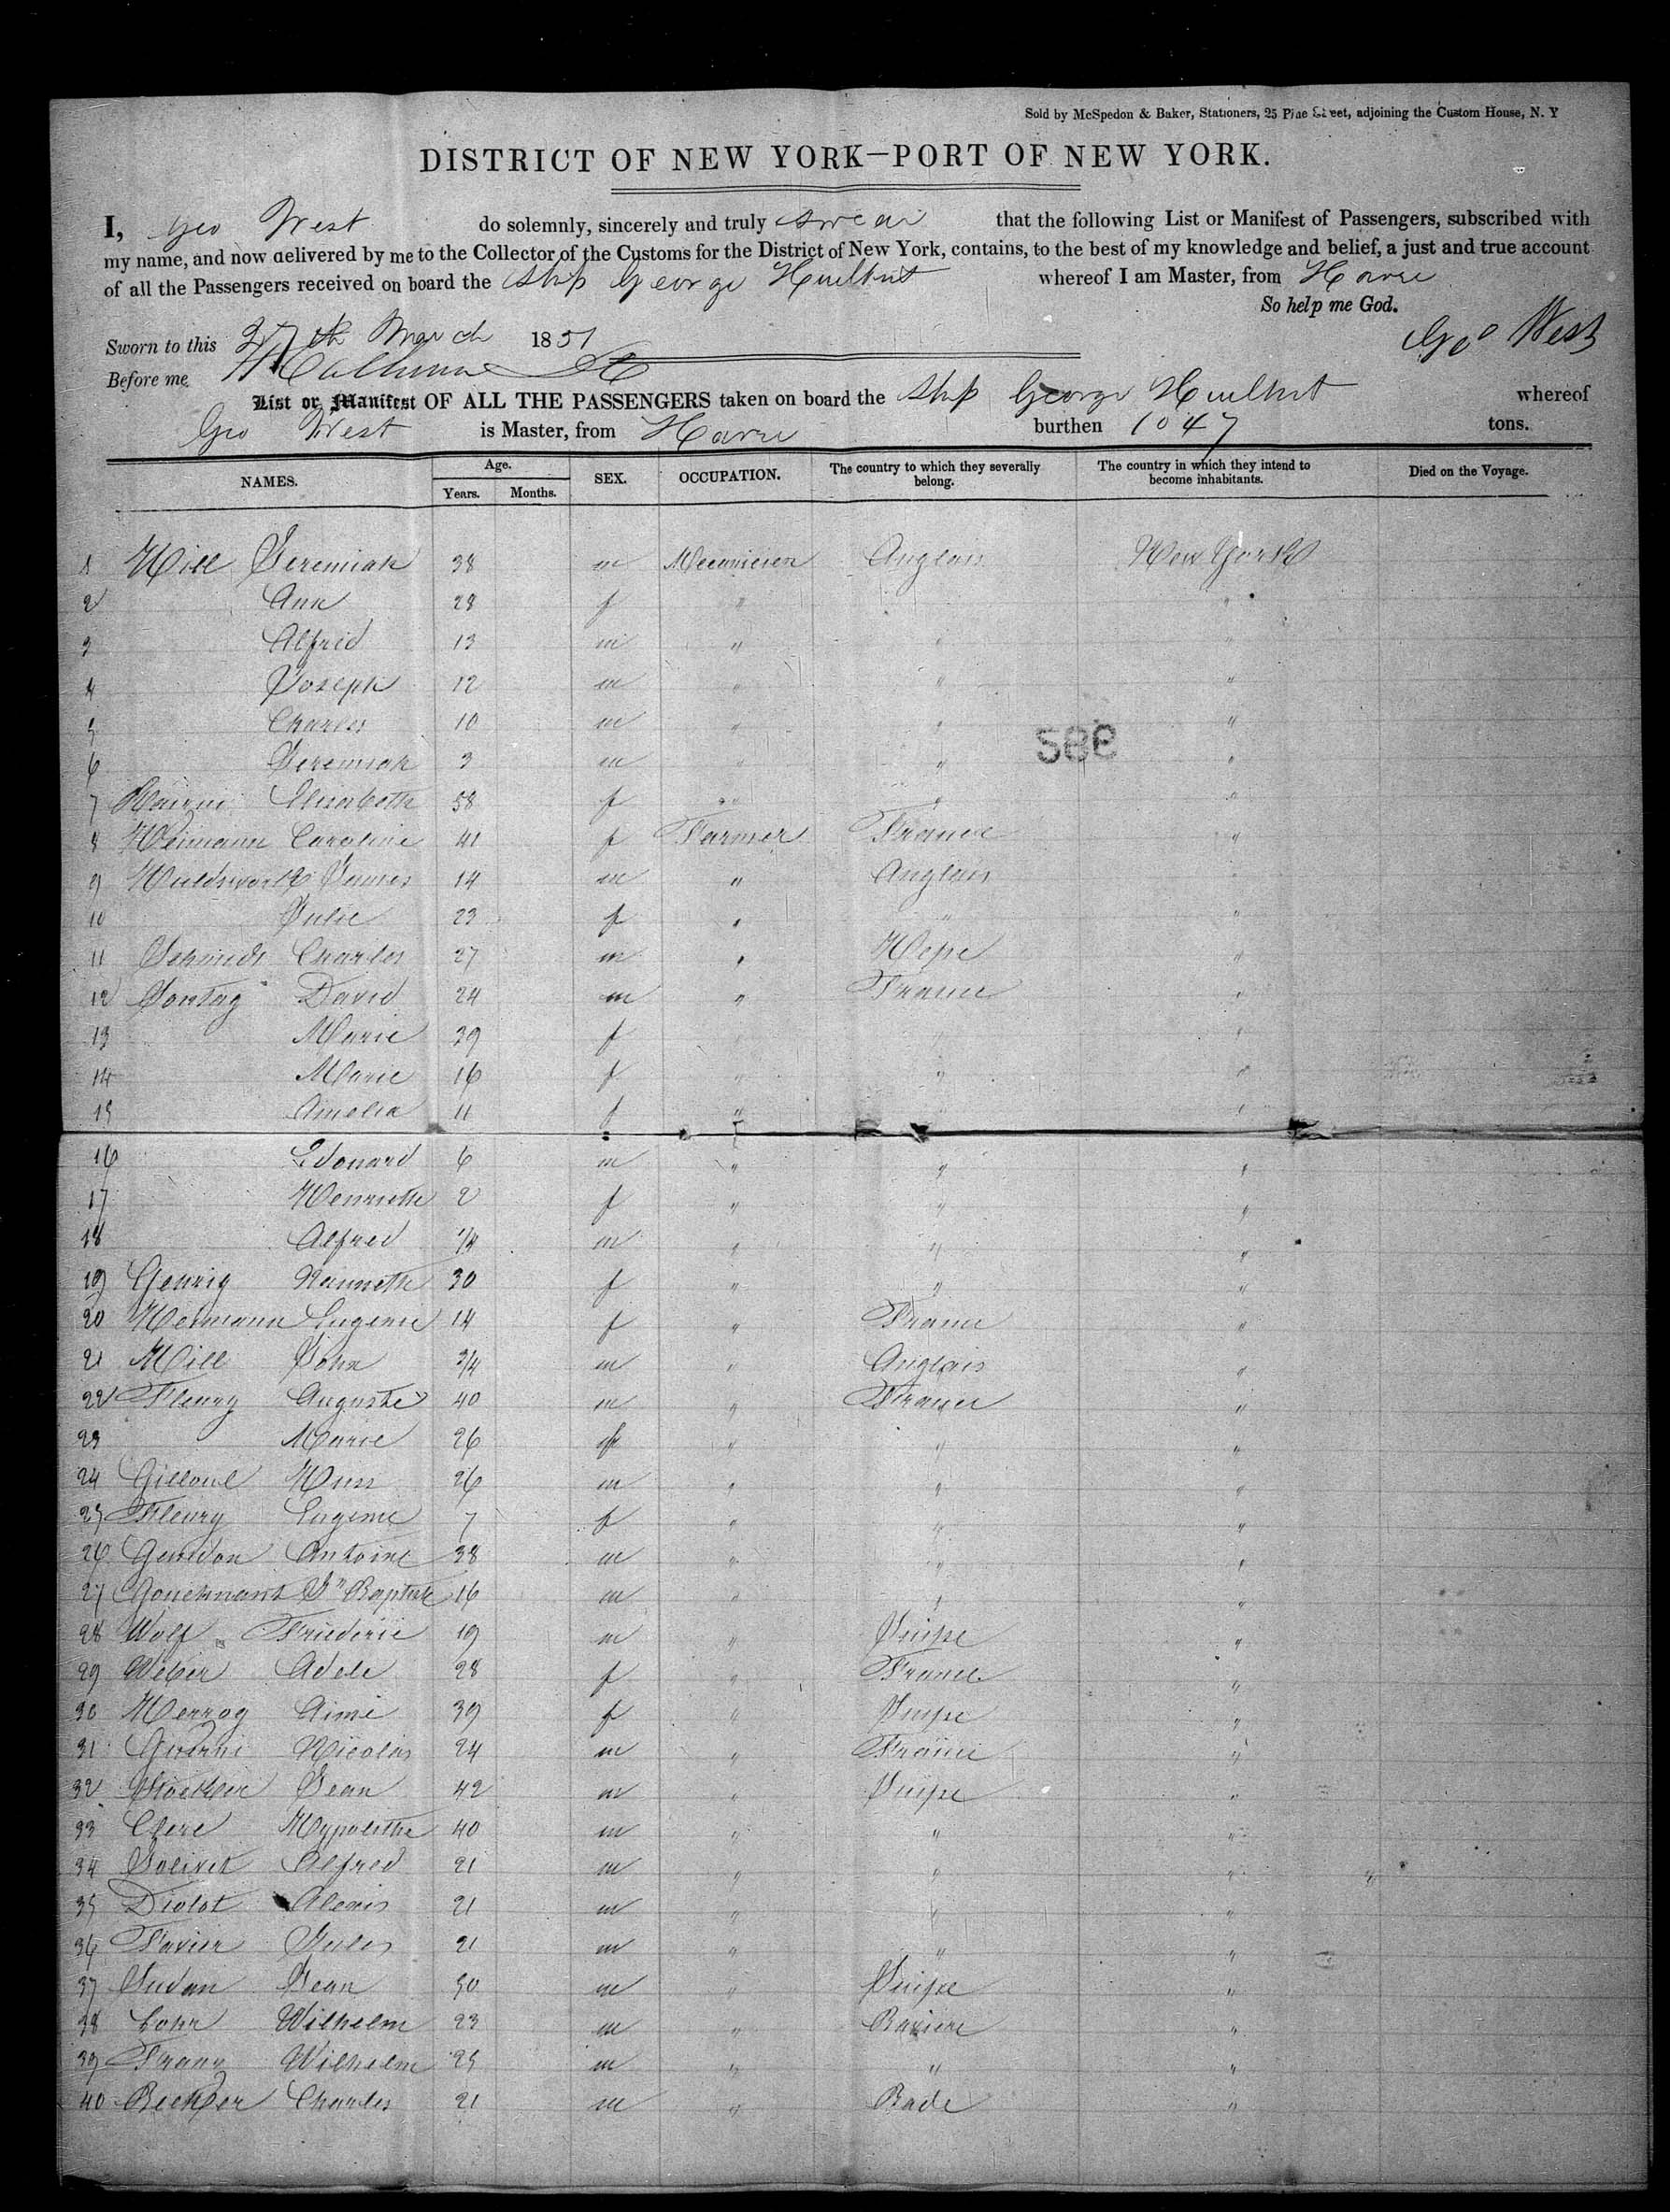 Sold by McSpedon & Baker, Stationers, 25 Pine Street, adjoining the Custom House, N. Y
DISTRICT OF NEW YORK—PORT OF NEW YORK.
I, Geo West do solemnly, sincerely and truly swear that the following List or Manifest of Passengers, subscribed with
my name, and now delivered by me to the Collector of the Customs for the District of New York, contains, to the best of my knowledge and belief, a just and true account
of all the Passengers received on board the ship George Hurlbut whereof I am Master, from Havre
So help me God.
Sworn to this 27th March 1851 Geo West
Before me
List or Manifest OF ALL THE PASSENGERS taken on board the ship George Hurlbut whereof
Geo West is Master, from Havre burthen 1047 tons.
NAMES. Age. Years. Months. SEX. OCCUPATION. The country to which they severally belong. The country in which they intend to become inhabitants. Died on the Voyage.
1 Hill Jeremiah 38 m Mecanicien Anglais New York
2 Ann 28 f " "
3 Alfred 13 m " " "
4 Joseph 12 m " " "
5 Charles 10 m " " "
982
6 Jeremiah 3 m " " "
7 Elisabeth 58 f " " "
8 Heimann Caroline 41 f Farmer France "
9 James 14 m " Anglais "
10 Julie 23 f " " "
11 Schmidt Charles 27 m " Hesse "
12 Sontag David 24 m " France "
13 Marie 39 f " "
14 Marie 16 f " " "
15 Amelia 11 f " " "
16 Edouard 6 m " " "
17 Henriette 2 f " " "
18 Alfred 1/4 m " " "
19 Gehrig Nannette 30 f " " "
20 Heimann Eugenie 14 f " France "
21 Hill John 3/4 m " Anglais "
22 Fleury Auguste 40 m " France "
23 Marie 26 f " " "
24 26 m " " "
25 Fleury Eugenie 7 f " " "
26 Antoine 38 m " " "
27 Jn Baptiste 16 m " " "
28 Wolf Friederic 19 m " Suisse "
29 Weber Adele 28 f " France "
30 Herzog Aime 39 f " Suisse "
31 Nicolas 24 m " France "
32 Jean 42 m " Suisse "
33 Clerc Hypolithe 40 m " " "
34 Jolivet Alfred 21 m " " "
35 Diolot Alexis 21 m " " "
36 Favier Jules 21 m " " "
37 Sudan Jean 50 m " Suisse "
38 Lohr Wilhelm 23 m " Baviere "
39 Franz Wilhelm 25 m " " "
40 Becker Charles 21 m " Bade "